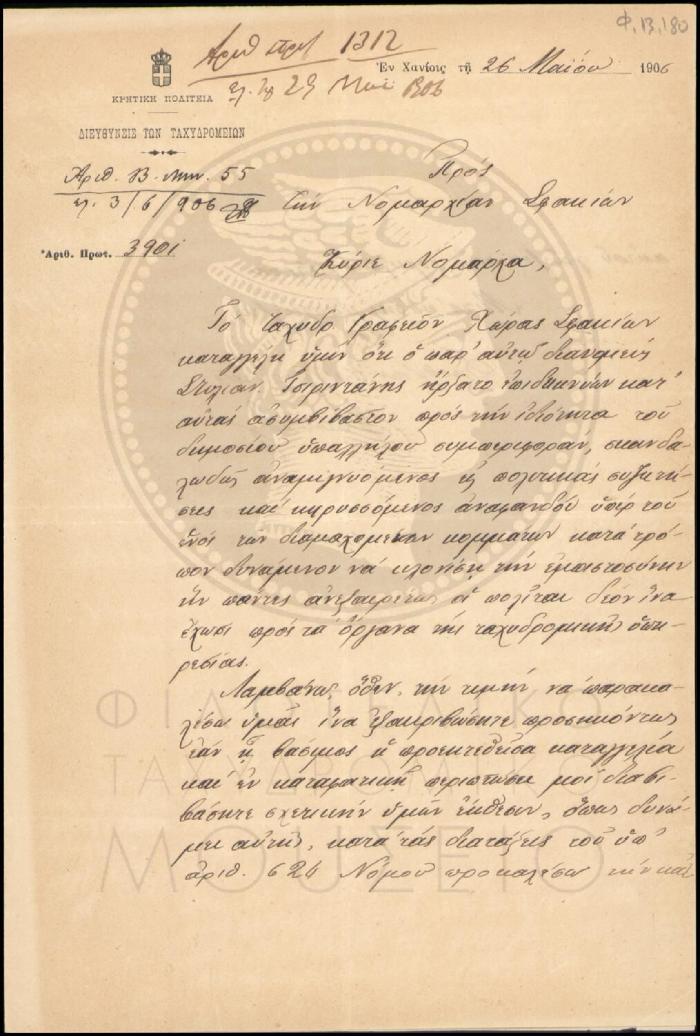 Φ.13.180
Αριθ πρωτ 1312
ελ. τη 29 Μαΐ 1906
ΚΡΗΤΙΚΗ ΠΟΛΙΤΕΙΑ
ΔΙΕΥΘΥΝΣΙΣ ΤΩΝ ΤΑΧΥΔΡΟΜΕΙΩΝ
Ἐν Χανίοις τῇ 26 Μαΐου 1906
Αριθ. 55
ελ. 3/6/906
Ἀριθ. Πρωτ. 3901
Πρὸς
τὴν Νομαρχίαν Σφακίων
Κύριε Νομάρχα,
Τὸ Ταχυδρ Γραφεῖον Χώρας Σφακίων
καταγγέλει ἡμῖν ὅτι ὁ παρ' αὐτῷ διανομεὺς
Στυλιαν. Τσιριντάνης ἤρξατο ἐπιδεικνύων κατ'
αὐτὰς ἀσυμβίβαστον πρὸς τὴν ἰδιότητα τοῦ
δημοσίου ὑπαλλήλου συμπεριφοράν, σκανδα-
λωδῶς ἀναμιγνυόμενος εἰς πολιτικὰς συζητή-
σεις καὶ κηρυσσόμενος ἀναφανδὸν ὑπὲρ τοῦ
ἑνὸς τῶν διαμαχομένων κομμάτων κατὰ τρό-
πον δυνάμενον νὰ κλονίσῃ τὴν ἐμπιστοσύνην
ἣν πάντες ἀνεξαιρέτως οἱ πολῖται δέον ἵνα
ἔχωσι πρὸς τὰ ὄργανα τῆς ταχυδρομικῆς ὑπη-
ρεσίας.
Λαμβάνω, ὅθεν, τὴν τιμὴν νὰ παρακα-
λέσω ὑμᾶς ἵνα ἐξακριβώσητε προσηκόντως
ἐὰν ᾖ βάσιμος ἡ προεκτεθεῖσα καταγγελία
καὶ ἐν καταφατικῇ περιπτώσει μοὶ διαβι-
βάσητε σχετικὴν ὑμῶν ἔκθεσιν, ὅπως δυνά-
μει αὐτῆς, κατὰ τὰς διατάξεις τοῦ ὑπ'
ἀριθ. 624 Νόμου προκαλέσω τὴν κατ'
ΦΙΛΟΤΕΛΙΚΟ
ΤΑΧΥΔΡΟΜΙΚΟ
ΜΟΥΣΕΙΟ